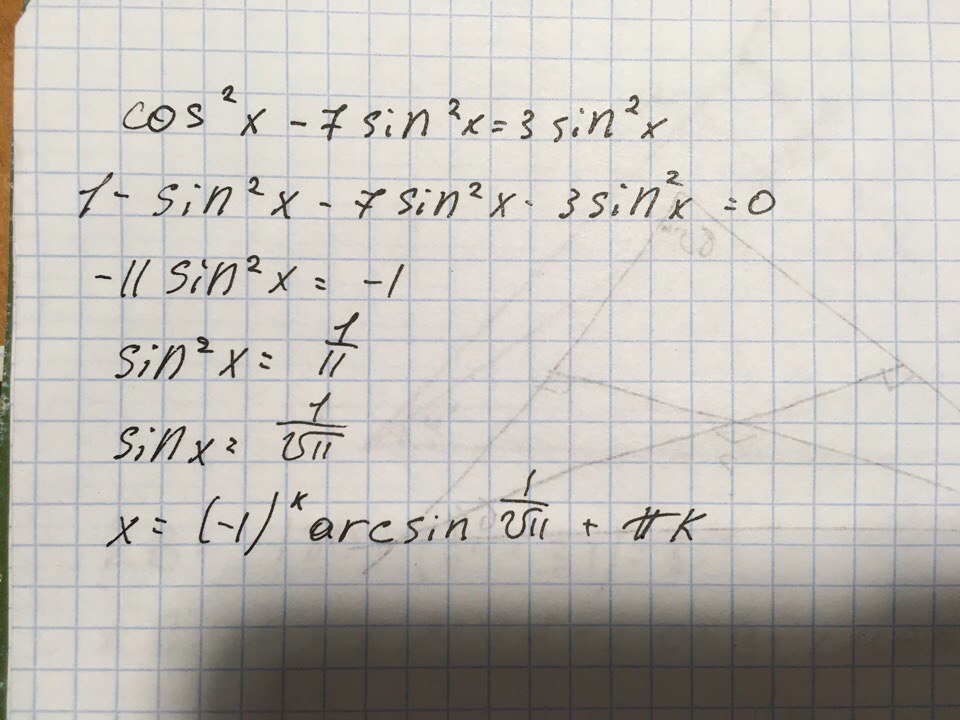 cos²x - 7 sin²x = 3 sin²x
1 - sin²x - 7 sin²x - 3 sin²x = 0
-11 sin²x = -1
sin²x = 1/11
sin x = 1/√11
x = (-1)ᵏ arcsin 1/√11 + πk